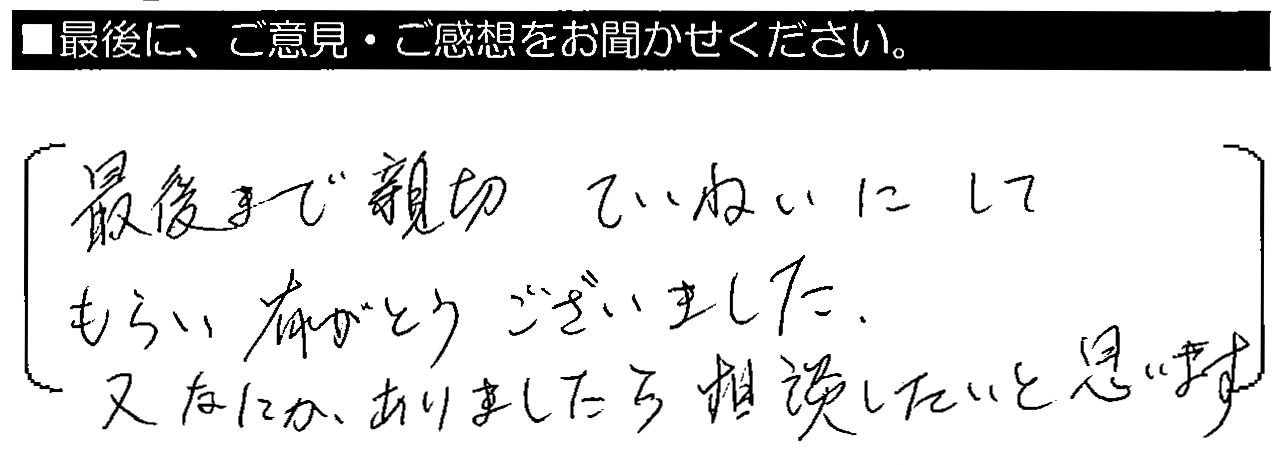 ■最後に、ご意見・ご感想をお聞かせください。
最後まで親切 ていねいに して
もらい 有がとう ございました.
又なにか、ありましたら 相談したいと思います